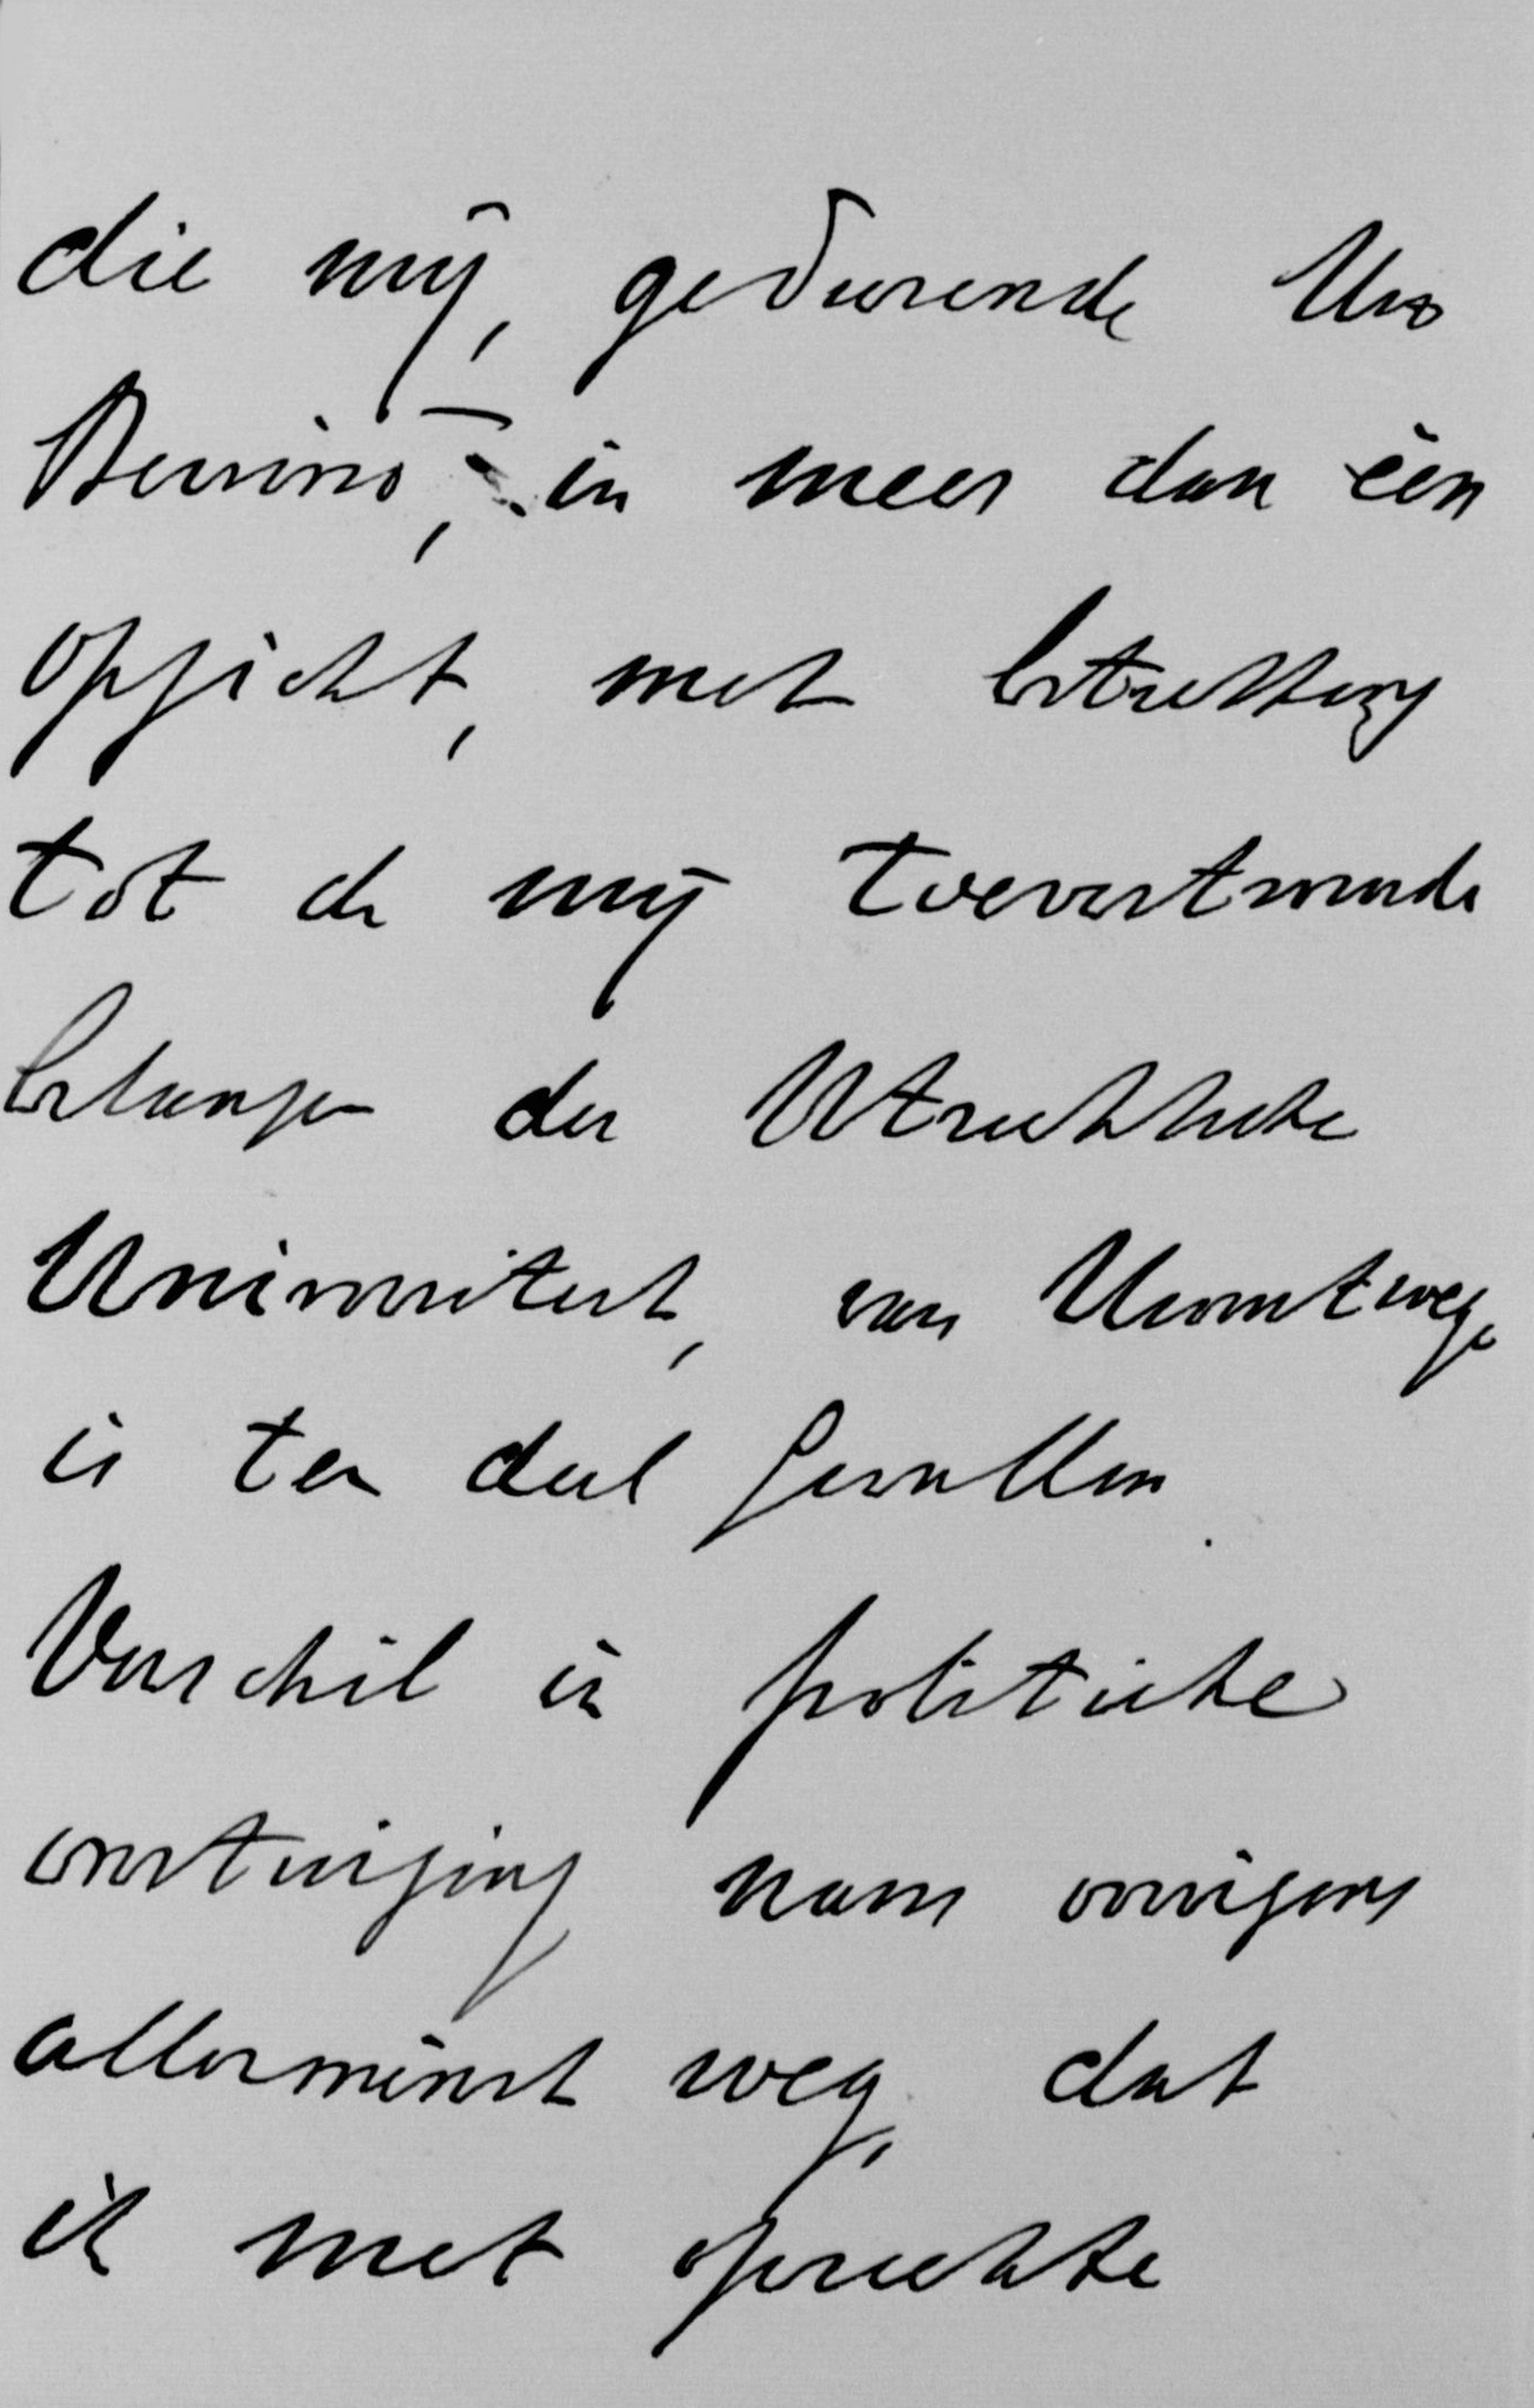 die mij, gedurende Uw
Bewind, in meer dan één
opzicht, met betrekking
tot de mij toevertrouwde
belangen der Utrechtsche
Universiteit, van Uwentwege
is ten deel gevallen.
Verschil in politieke
overtuiging nam overigens
allerminst weg, dat
ik met oprechte